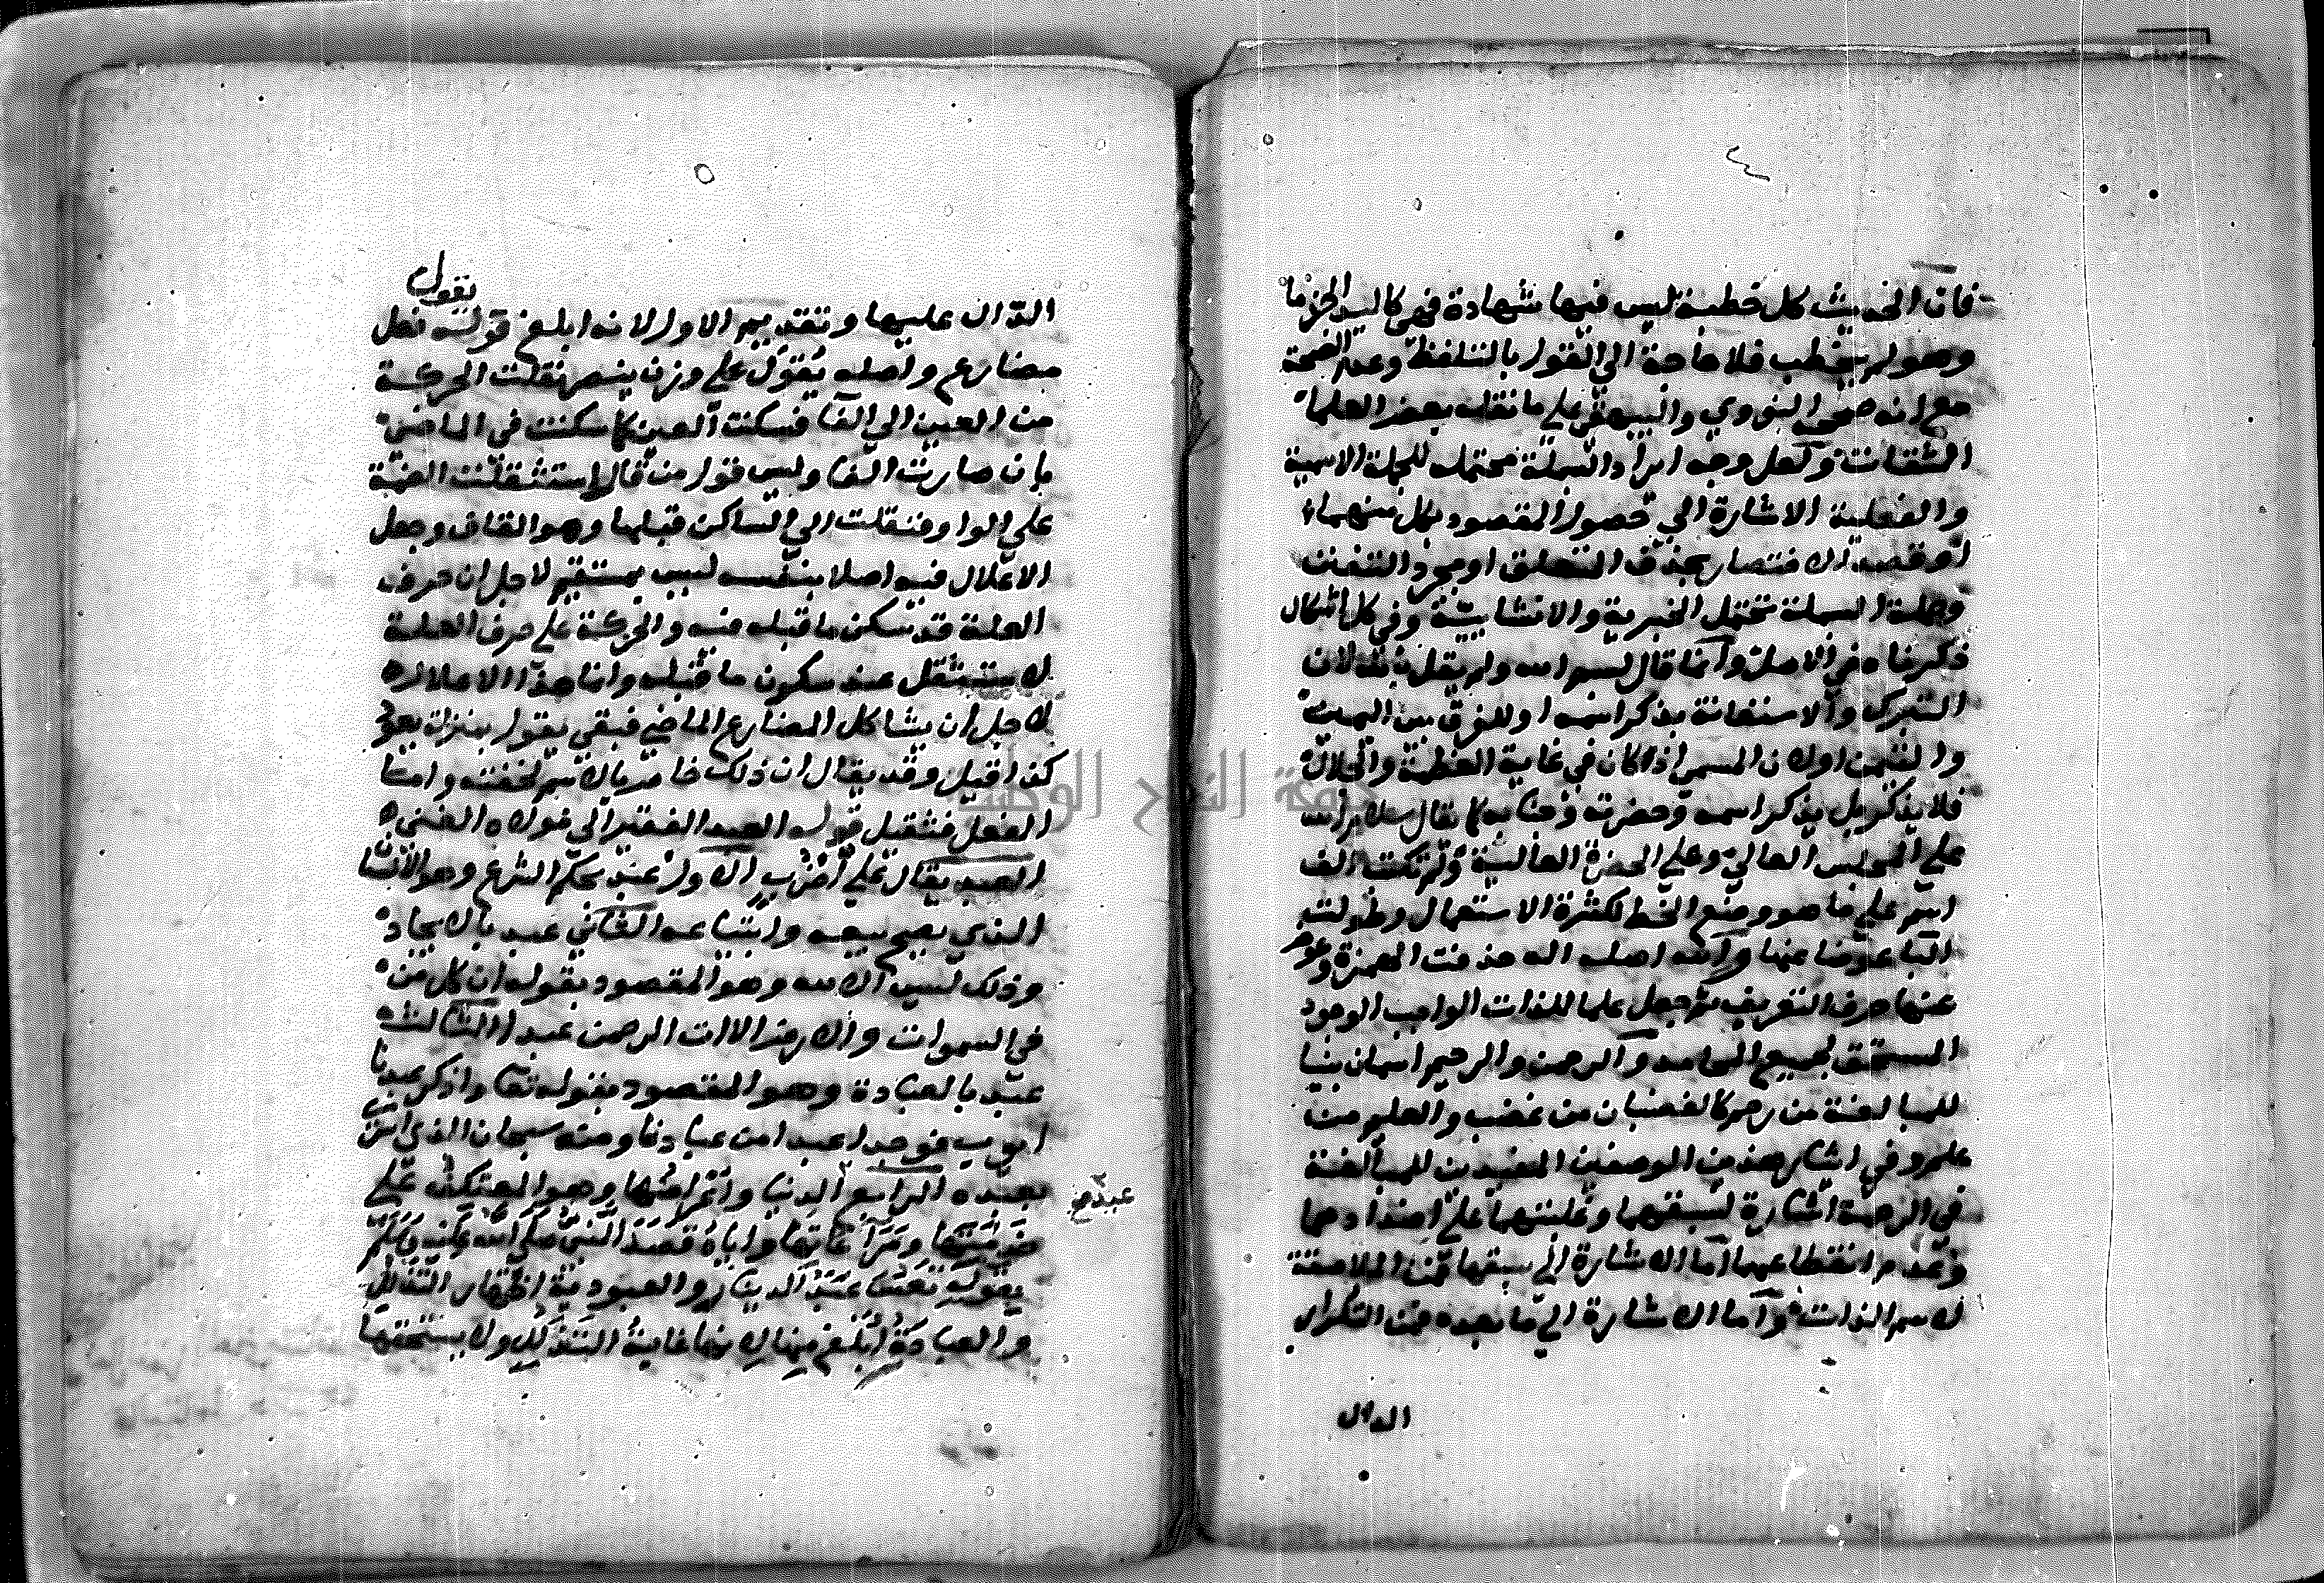 فان الحديث كل خطبة ليس فيها شهادة فهي كاليد الجزما
وهو لم يخطب فلا حاجة الى القول بالتلفظ وعدم الصحة
مع انه صححه النووي والبيهقي على ما نقله بعض العلماء
الثقات ولعل وجه ايراد البسملة محتملة للجملة الاسمية
والفعلية الاشارة الى حصول المقصود بكل منهما
او قصد الاختصار بحذف المتعلق او مجرد التفنن
وجملة البسملة تحتمل الخبرية والانشائية وفي كل اشكال
ذكرناه في الاصل وانما قال بسم الله ولم يقل بالله لان
التبرك والاستعانة بذكر اسمه او للفرق بين اليمين
والتيمن او لان المسمى اذا كان في غاية العظمة والجلال
فلا يذكر بل يذكر اسمه وحضرته وجنابه كما يقال سلام الله
على المجلس العالي وعلى الحضرة العالية ولم تكتب الف
اسم على ما هو وضع الخط لكثرة الاستعمال وطولت
البا عوضا عنها والله اصله اله حذفت الهمزة وعوض
عنها حرف التعريف ثم جعل علما للذات الواجب الوجود
المستحق لجميع المحامد والرحمن والرحيم اسمان بنيا
للمبالغة من رحم كالغضبان من غضب والعليم من
علم وفي ايثار هذين الوصفين المفيدين للمبالغة
في الرحمة اشارة لسبقهما وغلبتهما على اضدادهما
وعدم انقطاعهما اما الاشارة الى سبقها فمن الملاصقة
لاسم الذات واما الاشارة الى ما بعده فمن التكرار
الدال
الدال عليها وتقديم الاول لانه ابلغ قوله يقول فعل
مضارع واصله يقول على وزن ينصر نقلت الحركة
من العين الى الفا فسكنت العين كما سكنت في الماضي
بان صارت الفا وليس قول من قال استثقلت الضمة
على الواو فنقلت الى الساكن قبلها وهو القاف وجعل
الاعلال فيه اصلا بنفسه ليس بمستقيم لاجل ان حرف
العلة قد سكن ما قبله فيه والحركة على حرف العلة
لا يستثقل عند سكون ما قبله وانما هذا الاعلال
لاجل ان يشاكل المضارع الماضي فبقي يقول بمنزلة يعود
كذا قيل وقد يقال ان ذلك خاص بالاسم لخفته واما
الفعل فثقيل قوله العبد الفقير الى مولاه الغني
العبد يقال على اضرب الاول عبد بحكم الشرع وهو الانسان
الذي يصح بيعه وابتياعه الثاني عبد بالايجاد
وذلك ليس الا لله وهو المقصود بقوله ان كل من
في السموات والارض الا ات الرحمن عبدا الثالث
عبد بالعبادة وهو المقصود بقوله تعا واذكر عبدنا
ايوب فوجدا عبدا من عبادنا ومنه سبحان الذي اسرى
بعبده الرابع الدنيا واغراضها وهو المعتكف على
عبد صح
خدمتها ومراعاتها واياه قصد النبي صلى الله عليه وسلم
بقوله تعس عبد الدينار والعبودية اظهار التذلل
والعبادة ابلغ منها لانها غاية التذلل ولا يستحقها